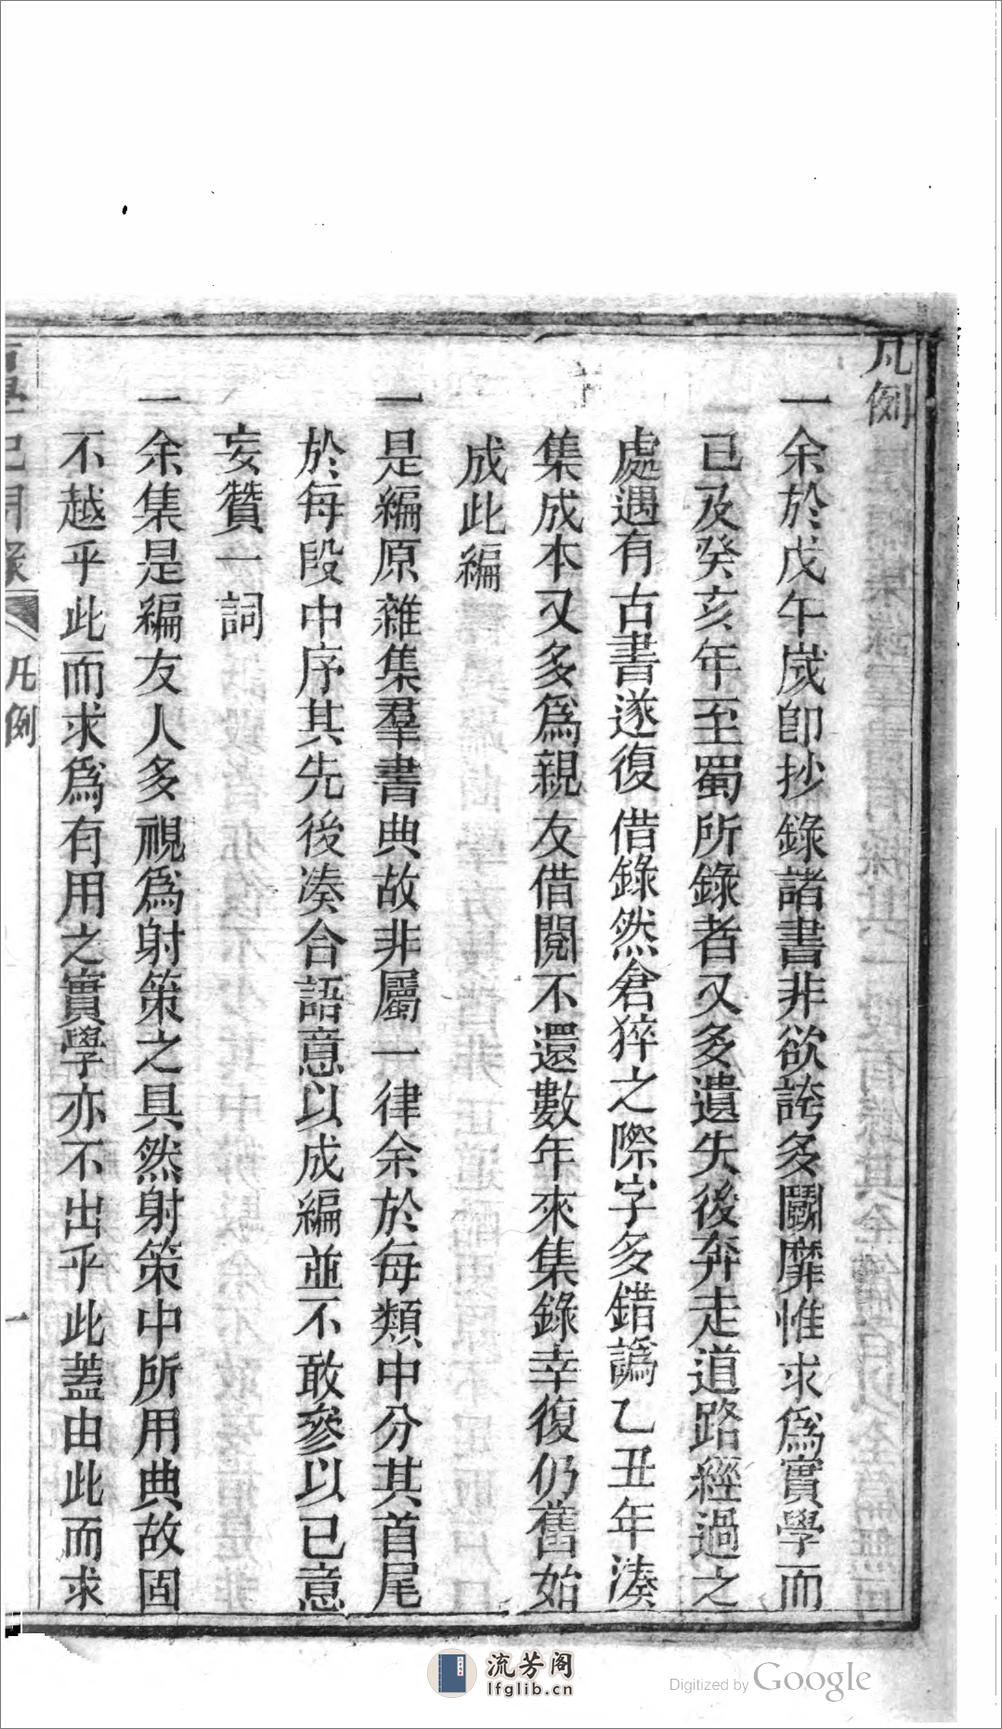 凡例
一余於戊午歲卽抄錄諸書非欲誇多鬬靡惟求爲實學而
已及癸亥年至蜀所錄者又多遺失後奔走道路經過之
處遇有古書遂復借錄然倉猝之際字多錯譌乙丑年湊
集成本又多爲親友借閱不還數年來集錄幸復仍舊始
成此編
一是編原雜集羣書典故非屬一律余於每類中分其首尾
於每段中序其先後凑合語意以成編並不敢參以已意
妄贊一詞
一余集是編友人多視爲射策之具然射策中所用典故固
不越乎此而求爲有用之實學亦不出乎此蓋由此而求
凡例
一
流芳阁
lfglib.cn
Digitized by Google